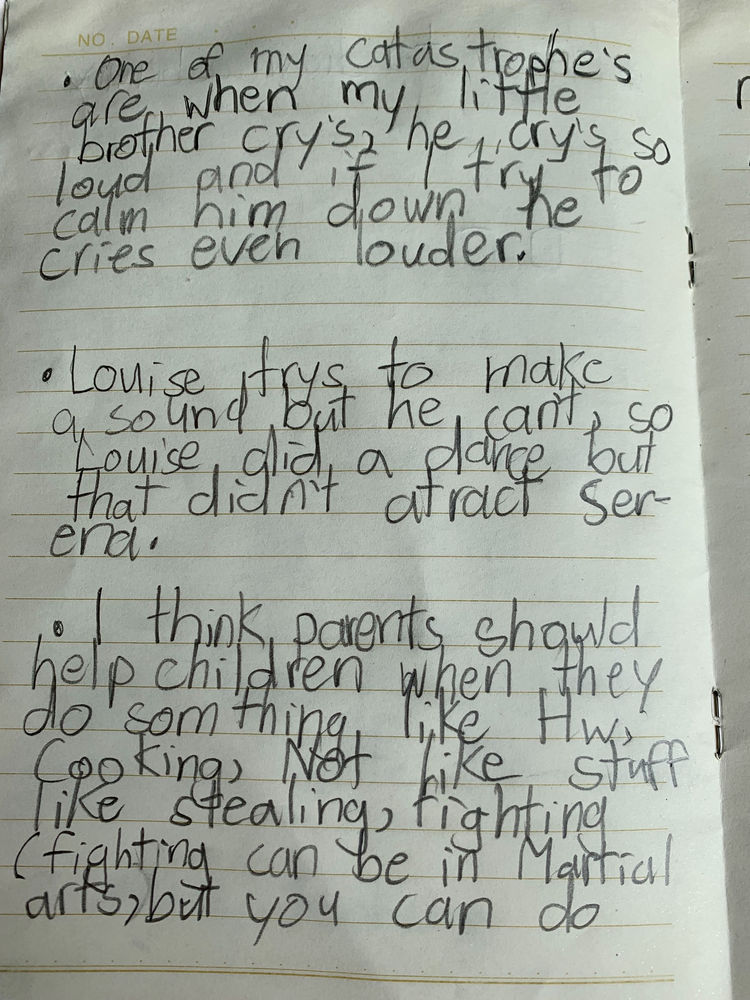 NO. DATE
• One of my catastrophe's
are when my little
brother cry's, he cry's so
loud and if I try to
calm him down he
cries even louder.
• Louise trys to make
a sound but he can't, so
Louise did a dance but
that didn't atract Ser-
ena.
• I think parents should
help children when they
do somthing like Hw,
Cooking, Not like stuff
like stealing, fighting
(fighting can be in Martial
arts, but you can do